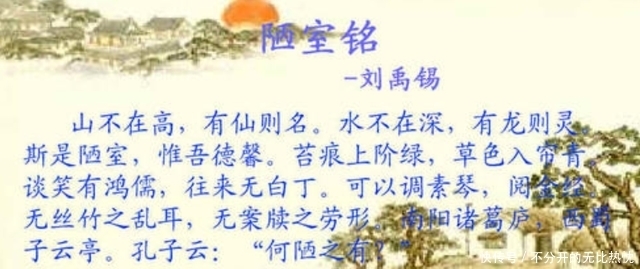 陋室铭
-刘禹锡
山不在高，有仙则名。水不在深，有龙则灵。
斯是陋室，惟吾德馨。苔痕上阶绿，草色入帘青。
谈笑有鸿儒，往来无白丁。可以调素琴，阅金经。
无丝竹之乱耳，无案牍之劳形。南阳诸葛庐，西蜀
子云亭。孔子云：“何陋之有？”
不分开的无比热忱